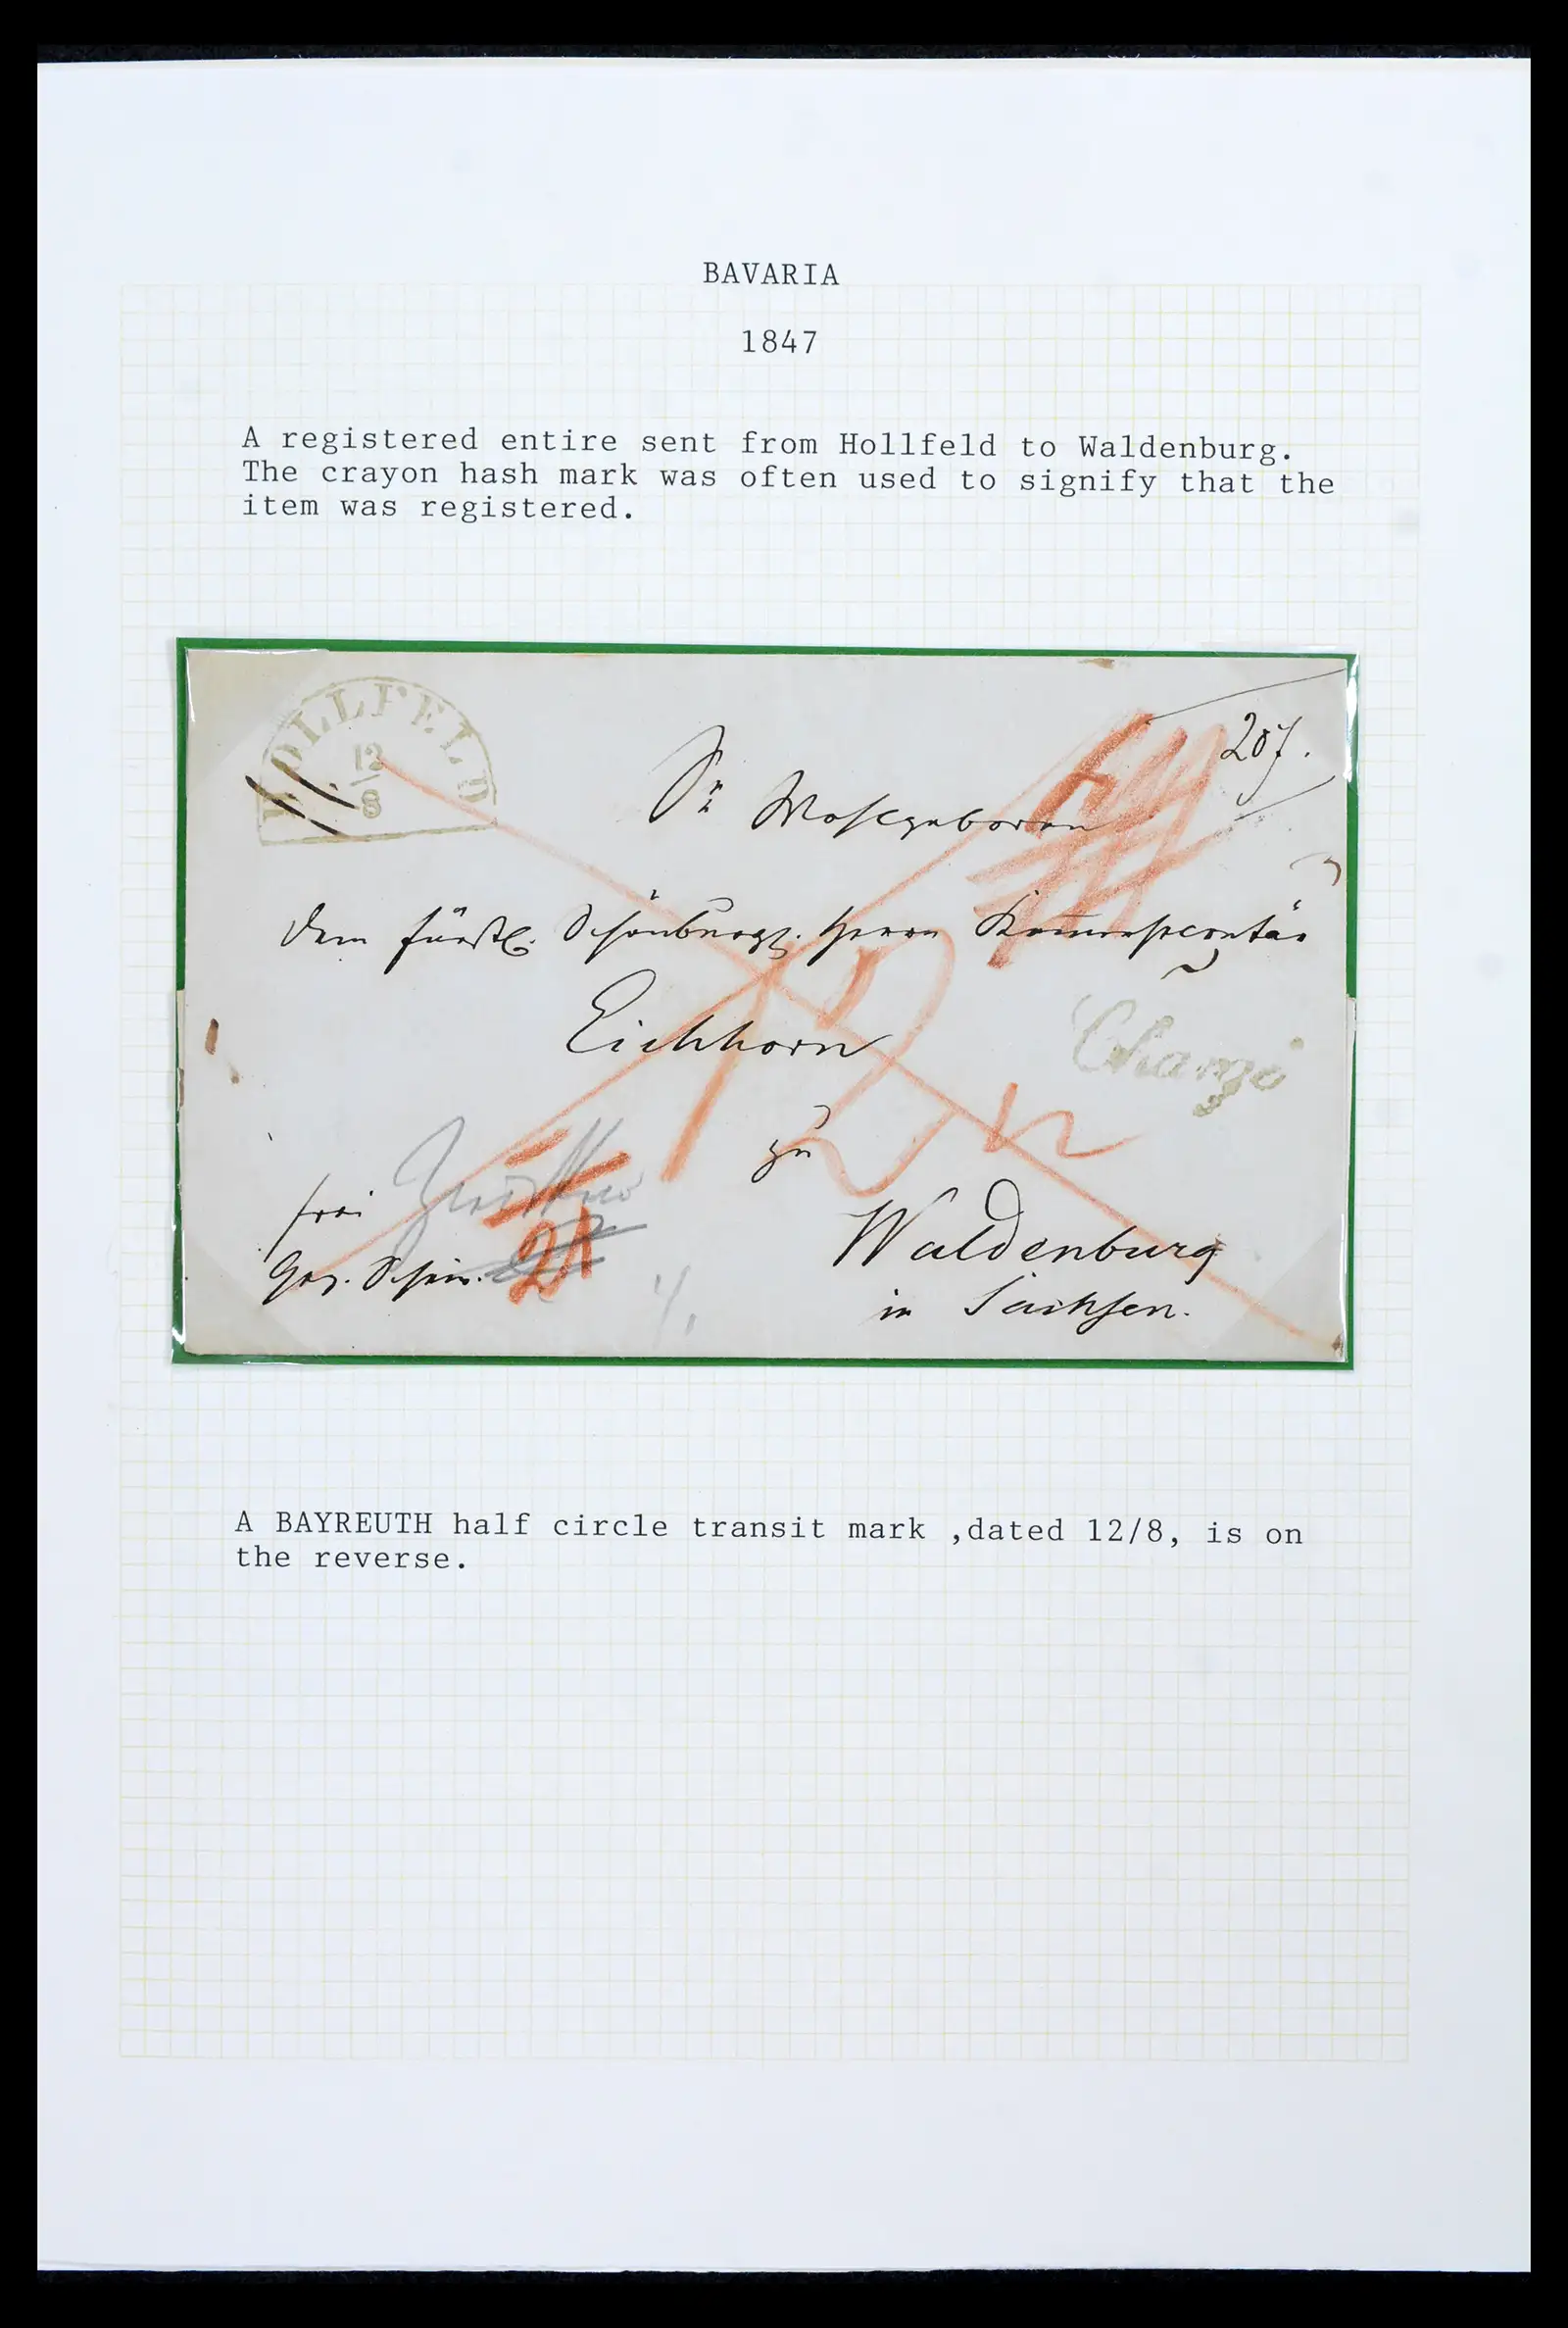 BAVARIA
1847
A registered entire sent from Hollfeld to Waldenburg.
The crayon hash mark was often used to signify that the
item was registered.
HOLLFELD
12
8
207.
Sr Wohlgeboren
dem fürstl. Schönburg. Herrn
Eichhorn
Chargé
zu
frei
Waldenburg
21
in Sachsen.
A BAYREUTH half circle transit mark ,dated 12/8, is on
the reverse.